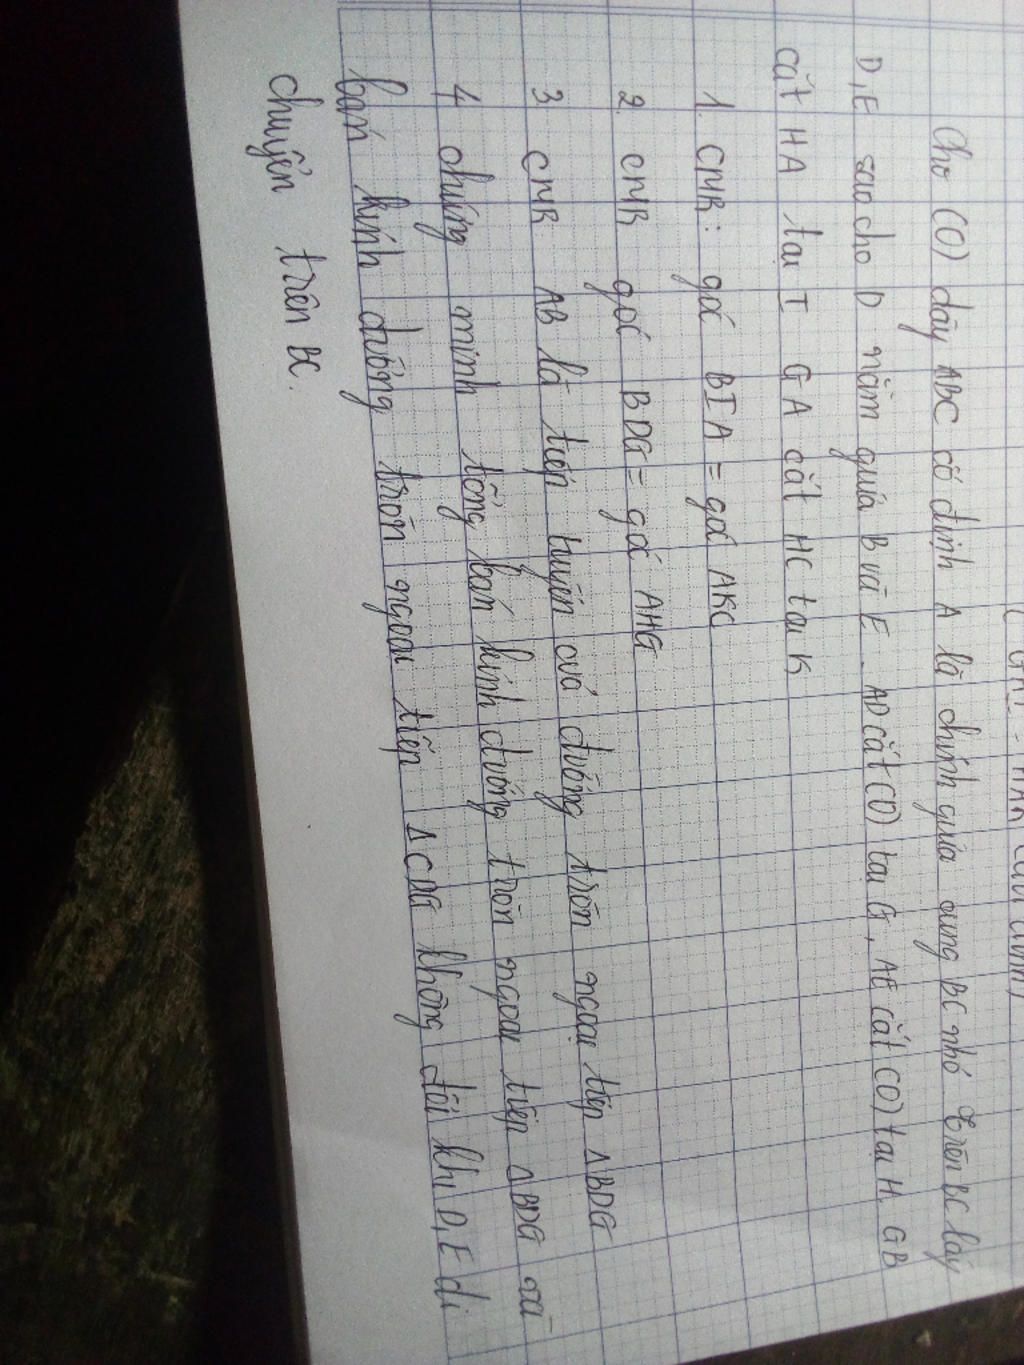 Cho (O) dây ABC cố định A là chính giữa cung BC nhỏ Trên BC lấy
D, E sao cho D nằm giữa B và E. AD cắt (O) tại G, AE cắt (O) tại H. GB
cắt HA tại I GA cắt HC tại K
1. CMR: góc BIA = góc AKC
2. CMR góc BDG = góc AHG
3 CMR AB là tiếp tuyến cuả đường tròn ngoại tiếp Δ BDG
4 chứng minh tổng bán kính đường tròn ngoại tiếp Δ BDG và
bán kính đường tròn ngoại tiếp Δ CDG không đổi khi D, E di
chuyển trên BC.